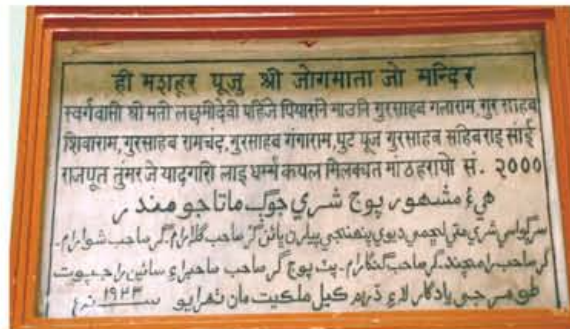 ही मशहूर पूजु श्री जोगमाता जो मन्दिर
स्वर्गवासी श्री मती लछमीदेवी पहिंजे पियारनि माउनि गुरसाहब गलाराम, गुर साहिब
शिवाराम, गुरसाहब रामचंद, गुरसाहब गंगाराम, पुट पूज गुरसाहब साहिबराइ सांई
राजपूत तुंमर जे यादगारी लाइ धर्म्म कयल मिलक्यत मां ठहरायो सं. २०००
هيءُ مشهور پوڄ شري جوڳ ماتا جو مندر
سرڳواسي شري متي لڇمي ديوي پنهنجي پيارن ڀائرن گر صاحب گلارام۔ گر صاحب شوارام۔
گر صاحب رامچند۔ گر صاحب گنگارام۔ پٽ پوڄ گر صاحب صاحبراءِ سائين راجپوت
طومر جي يادگار لاءِ ڌرم ڪيل ملڪيت مان ٺهرايو سنه ١٩٤٣ع